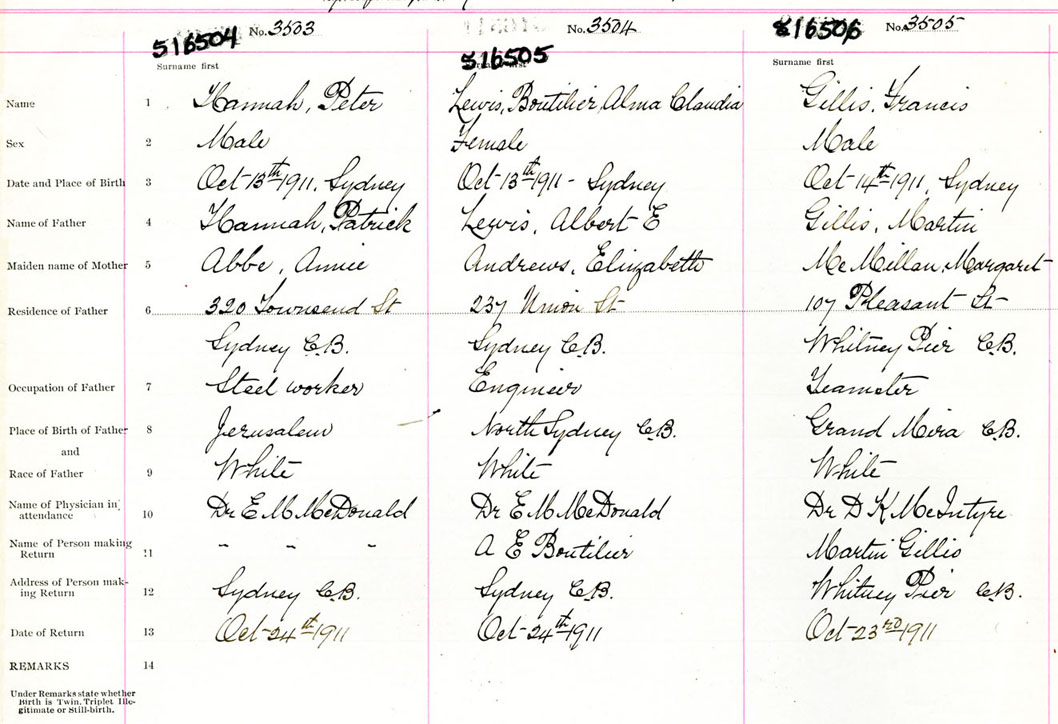 No. 3503 No. 3504 No. 3505
516504 516505 516506
Surname first Surname first
Name 1 Hannah, Peter Lewis, Boutilier, Alma Claudia Gillis, Francis
Sex 2 Male Female Male
Date and Place of Birth 3 Oct 13th 1911, Sydney Oct 13th 1911 - Sydney Oct 14th 1911, Sydney
Name of Father 4 Hannah, Patrick Lewis, Albert E Gillis, Martin
Maiden name of Mother 5 Abbe, Annie Andrews, Elizabeth McMillan, Margaret
Residence of Father 6 320 Townsend St 237 Union St 107 Pleasant St
Sydney C.B. Sydney C.B. Whitney Pier C.B.
Occupation of Father 7 Steel worker Engineer Teamster
Place of Birth of Father 8 Jerusalem North Sydney C.B. Grand Mira C.B.
and
Race of Father 9 White White White
Name of Physician in attendance 10 Dr E M McDonald Dr E M McDonald Dr D K McIntyre
Name of Person making Return 11 - - - A E Boutilier Martin Gillis
Address of Person mak-
ing Return 12 Sydney C.B. Sydney C.B. Whitney Pier C.B.
Date of Return 13 Oct 24th 1911 Oct 24th 1911 Oct 23rd 1911
REMARKS 14
Under Remarks state whether
Birth is Twin, Triplet Ille-
gitimate or Still-birth.